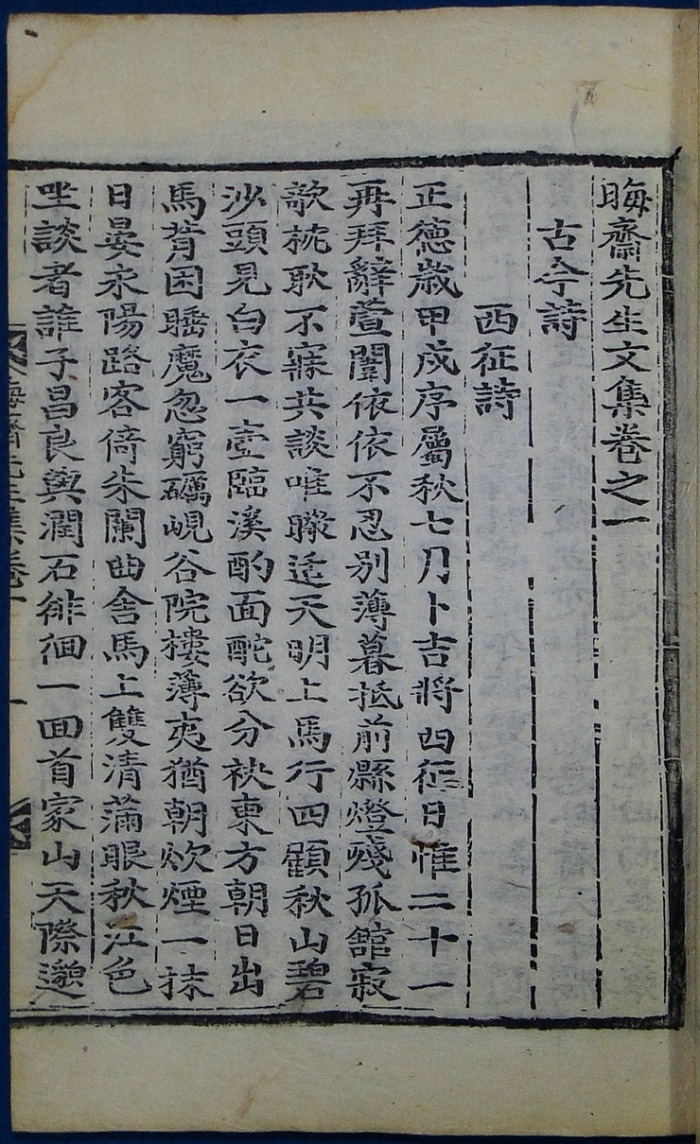 晦齋先生文集卷之一
古今詩
西征詩
正德歲甲戌序屬秋七月卜吉將西征日惟二十一
再拜辭萱闈依依不忍別薄暮抵前縣燈殘孤館寂
欹枕耿不寐共談唯矇逵天明上馬行四顧秋山碧
沙頭見白衣一壺臨溪酌面酡欲分袂東方朝日出
馬背困睡魔忽窮礪峴谷院樓薄夷猶朝炊煙一抹
日晏永陽路客倚朱闌曲舍馬上雙清滿眼秋江色
坐談者誰子昌良與潤石徘徊一回首家山天際邈